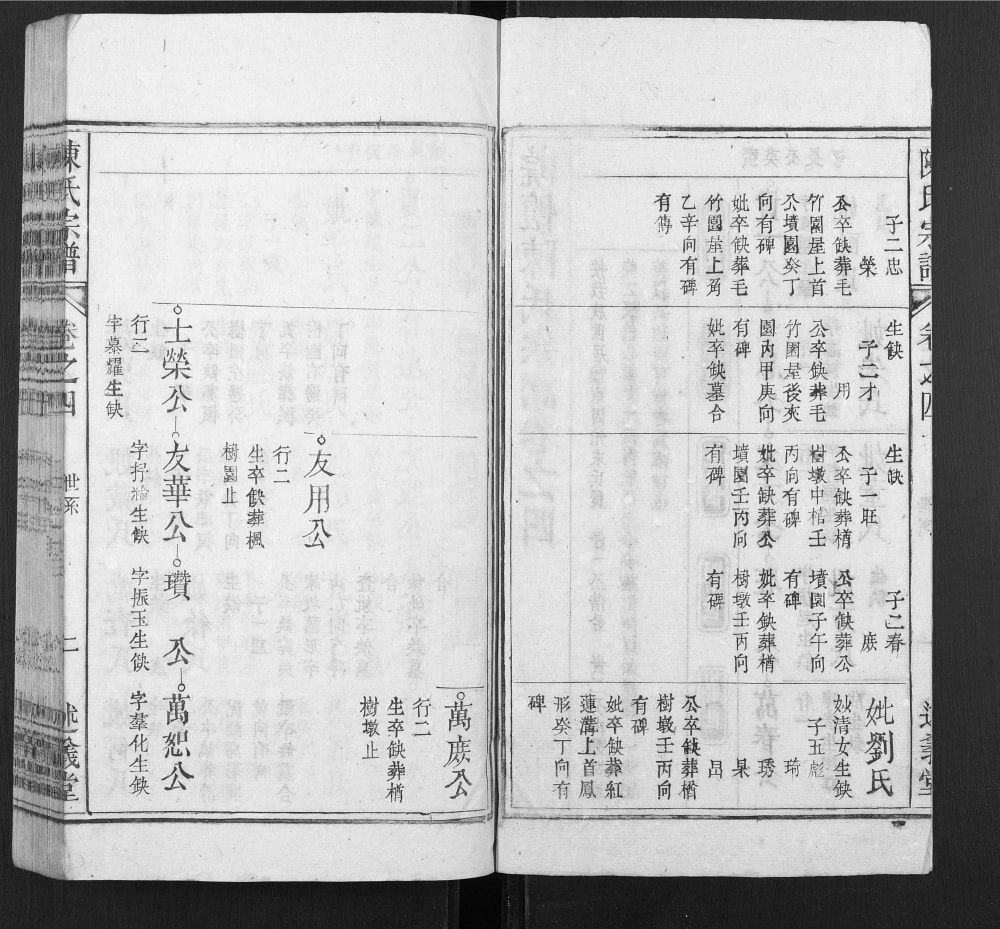 陳氏宗譜
子二忠
榮
公卒缺葬毛
竹園屋上首
公墳園癸丁
向有碑
妣卒缺葬毛
竹園屋上角
乙辛向有碑
有傳
生缺
子二才
用
公卒缺葬毛
竹園屋後夾
園內甲庚向
有碑
妣卒缺墓合
生缺
子一旺
公卒缺葬楕
樹墩中棺壬
丙向有碑
妣卒缺葬公
墳園壬丙向
有碑
子二春
庶
公卒缺葬公
墳園子午向
有碑
妣卒缺葬楕
樹墩壬丙向
有碑
妣劉氏
姒清女生缺
子五彪
琦
琇
杲
昌
公卒缺葬楕
樹墩壬丙向
有碑
妣卒缺葬紅
蓮溝上首鳳
形癸丁向有
碑
萬庶公
行二
生卒缺葬楕
樹墩止
友用公
行二
生卒缺葬楓
樹園止
士榮公
友華公
瓚公
萬恕公
行二
字慕耀生缺
生缺
字振玉生缺
字羣化生缺
陳氏宗譜
卷之四
世系
二
述義堂